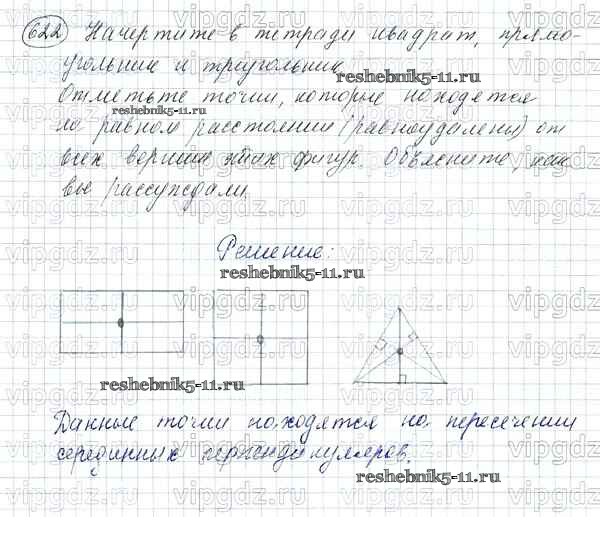 622 Начертите в тетради квадрат, прямо-
угольник и треугольник.
reshebnik5-11.ru
Отметьте точки, которые находятся
reshebnik5-11.ru
на равном расстоянии (равноудалены) от
всех вершин этих фигур. Объясните, как
вы рассуждали.
Решение:
reshebnik5-11.ru
reshebnik5-11.ru
Данные точки находятся на пересечении
серединных перпендикуляров.
reshebnik5-11.ru
vipgdz.com